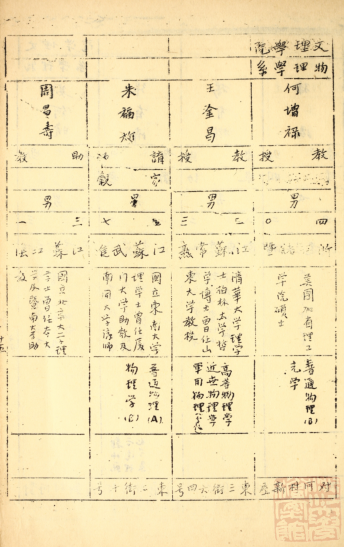 文理學院
物理學系
何增祿
教授
男
四〇
浙 諸暨
美國加省理工
學院碩士
普通物理(B)
光學
對河村新
王淦昌
教授
男
三二
江蘇常熟
清華大學理學
士柏林大學哲
學博士曾任山
東大學教授
高等物理學
近世物理學
軍用物理
東三街六四号
朱福炘
講家
男
七
江蘇武進
國立東南大學
理學士曾任廈
門大學助教及
南開大學講師
普通物理(A)
物理學(C)
東二街十号
周昌壽
助教
男
三一
江蘇
國立北平大學理
學士曾任
學及暨南大學助
教